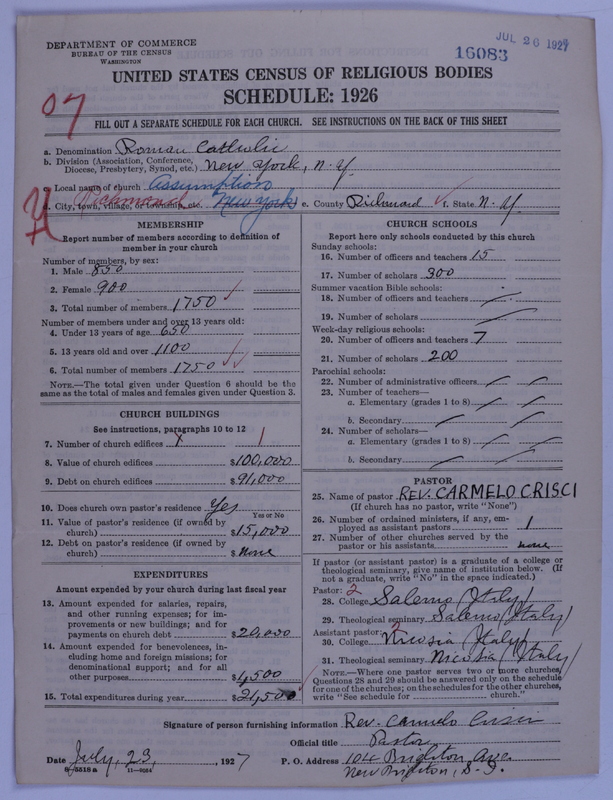 DEPARTMENT OF COMMERCE
BUREAU OF THE CENSUS
WASHINGTON
JUL 26 1927
16083
UNITED STATES CENSUS OF RELIGIOUS BODIES
SCHEDULE: 1926
07
FILL OUT A SEPARATE SCHEDULE FOR EACH CHURCH. SEE INSTRUCTIONS ON THE BACK OF THIS SHEET
a. Denomination Roman Catholic
b. Division (Association, Conference, Diocese, Presbytery, Synod, etc.) New York, N.Y.
c. Local name of church Assumption
d. City, town, village, or township, etc. Richmond New York e. County Richmond f. State N.Y.
MEMBERSHIP
Report number of members according to definition of member in your church
Number of members, by sex:
1. Male 850
2. Female 900
3. Total number of members 1750
Number of members under and over 13 years old:
4. Under 13 years of age 650
5. 13 years old and over 1100
6. Total number of members 1750
NOTE.—The total given under Question 6 should be the same as the total of males and females given under Question 3.
CHURCH BUILDINGS
See instructions, paragraphs 10 to 12
7. Number of church edifices 1 1
8. Value of church edifices $100,000
9. Debt on church edifices $91,000
10. Does church own pastor's residence Yes
Yes or No
11. Value of pastor's residence (if owned by church) $15,000
12. Debt on pastor's residence (if owned by church) $none
EXPENDITURES
Amount expended by your church during last fiscal year
13. Amount expended for salaries, repairs, and other running expenses; for improvements or new buildings; and for payments on church debt $20,000
14. Amount expended for benevolences, including home and foreign missions; for denominational support; and for all other purposes $1,500
15. Total expenditures during year $21,500
CHURCH SCHOOLS
Report here only schools conducted by this church
Sunday schools:
16. Number of officers and teachers 15
17. Number of scholars 300
Summer vacation Bible schools:
18. Number of officers and teachers
19. Number of scholars
Week-day religious schools:
20. Number of officers and teachers 7
21. Number of scholars 200
Parochial schools:
22. Number of administrative officers
23. Number of teachers—
a. Elementary (grades 1 to 8)
b. Secondary
24. Number of scholars—
a. Elementary (grades 1 to 8)
b. Secondary
PASTOR
25. Name of pastor REV. CARMELO CRISCI
(If church has no pastor, write "None")
26. Number of ordained ministers, if any, employed as assistant pastors 1
27. Number of other churches served by the pastor or his assistants none
If pastor (or assistant pastor) is a graduate of a college or theological seminary, give name of institution below. (If not a graduate, write "No" in the space indicated.)
Pastor: 2
28. College Salerno (Italy)
29. Theological seminary Salerno (Italy)
Assistant pastor:
30. College Nicosia (Italy)
31. Theological seminary Nicosia (Italy)
NOTE.—Where one pastor serves two or more churches, Questions 28 and 29 should be answered only on the schedule for one of the churches; on the schedules for the other churches, write "See schedule for church."
Signature of person furnishing information Rev. Carmelo Crisci
Official title Pastor
Date July, 23, 1927 P. O. Address 104 Brighton Ave.
8-5518a 11-9264 New Brighton, S. I.